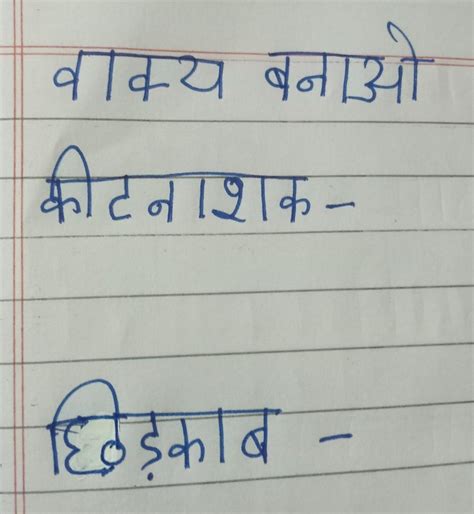 वाक्य बनाओ
कीटनाशक -
छिड़काब -